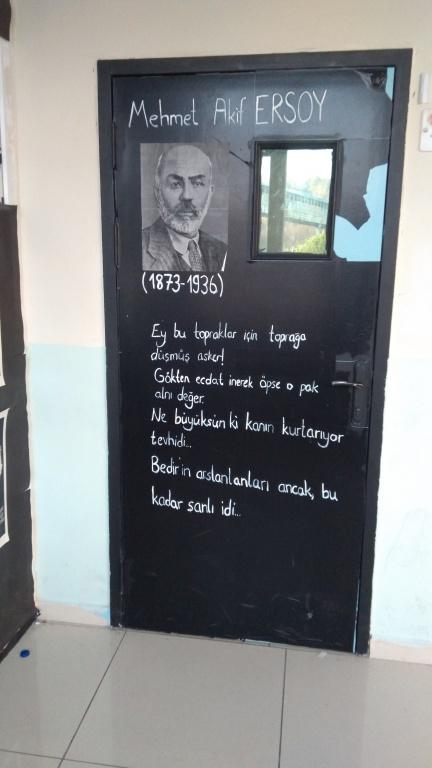 Mehmet Akif ERSOY
(1873-1936)
Ey bu topraklar için toprağa
düşmüş asker!
Gökten ecdat inerek öpse o pak
alnı değer.
Ne büyüksün ki kanın kurtarıyor
tevhidi...
Bedir'in arslanlanları ancak, bu
kadar şanlı idi...